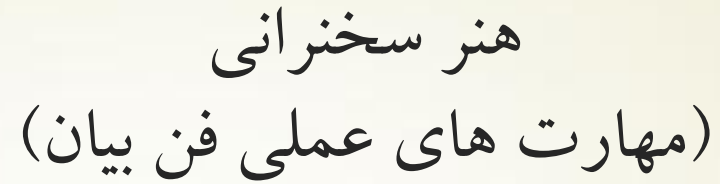 هنر سخنرانی
(مهارت های عملی فن بیان)